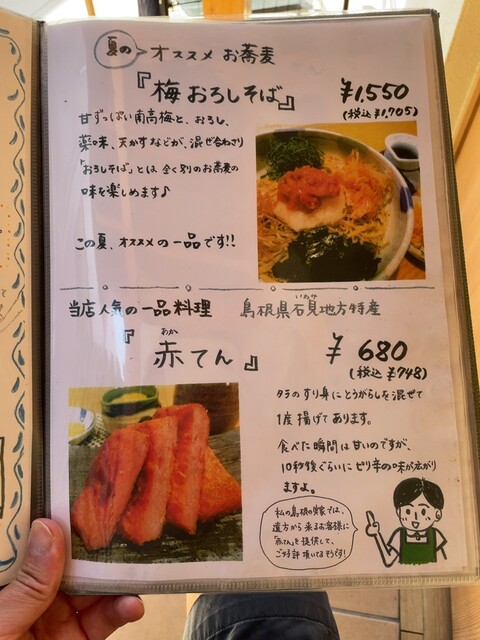 夏の オススメ お蕎麦
『梅おろしそば』
¥1,550
(税込 ¥1,705)
甘ずっぱい南高梅と、おろし、
薬味、天かすなどが、混ぜ合わさり
「おろしそば」とは全く別のお蕎麦の
味を楽しめます♪
この夏、オススメの一品です!!
当店人気の一品料理
島根県石見地方特産
いわみ
『赤てん』
あか
¥680
(税込 ¥748)
タラのすり身にとうがらしを混ぜて
1度揚げてあります。
食べた瞬間は甘いのですが、
10秒後ぐらいにピリ辛の味が広がり
ますよ。
私の島根の実家では、
遠方から来るお客様に
「赤てん」を提供して、
ご好評頂いてるそうです!